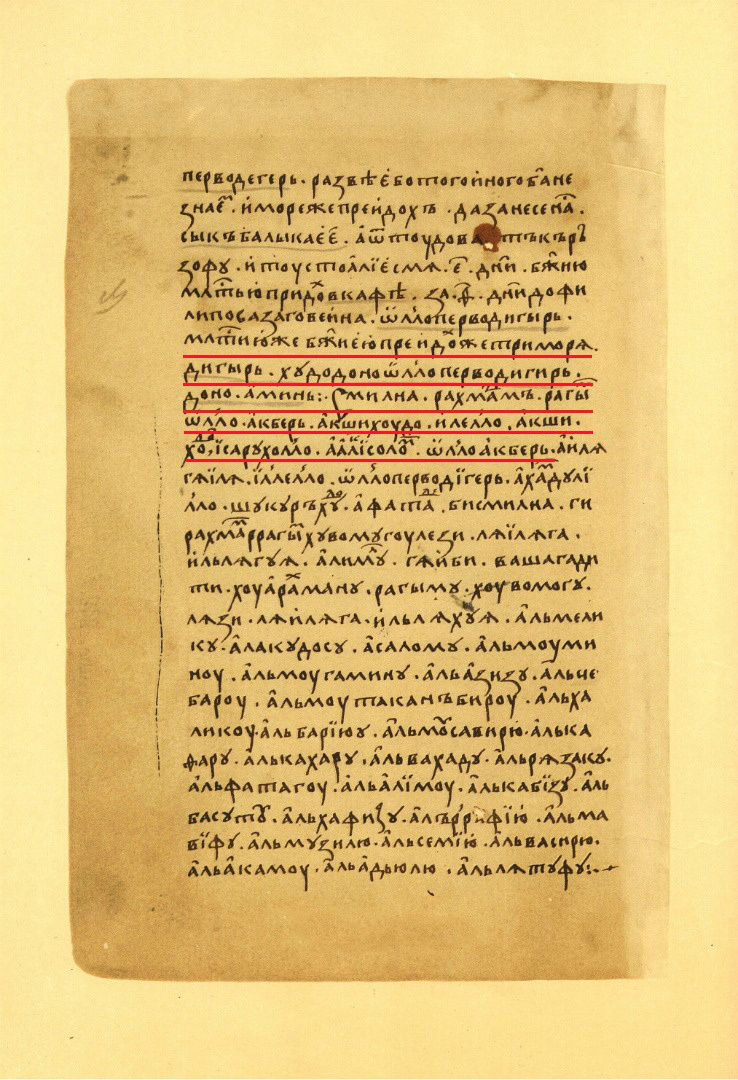 перводегерь · развѣ е҆ботогои҆ногоб҃ане
знае · и҆мореже преидохъ · дазанесена ·
сыкъбалыкаеѐ · а҆ѿтоудова тъкъръ
зофу · и҆тоустоалїе҆смѧ · е҃ · дн҃и · бж҃ию
млт҃ью придохъ вкафѣ · за · ѳ҃ · дн҃и дофи
липовазаговеина · ѡллоперводигырь ·
млт҃июже бж҃иею преидохже триморѧ ·
дигырь · худодоноѡллоперводигирь ·
доно · аминь : · смилна · рахмамъ · рагы
ѡлло · а҆кберь · а҆кшихоудо · илелло · а҆кши ·
ходо · і҆сарухолло · а҆а҆лїсолом · ѡлло а҆кберь · а҆илѧ
гѧїлѧ · їлелло · ѡллоперводїгерь · а҆хамдулї
лло · шукурьхудо · а҆фатадь · бисмилна · ги
рахмамррагым хувомугоулези · лѧїлѧга ·
ильлѧгуѧ · алимул · гѧиби · вашагади
ти · хоуарахману · рагыму · хоувомогу ·
лѧзи · лѧилѧга · ильлѧхуѧ · альмели
ку · алакудосу · а҆салому · альмоуми
ноу · альмоугамину · альазизу · альче
бароу · альмоутаканъбироу · альха
ликоу · альбарїюу · альмусавирю · алька
фару · алькахару · альвахаду · альрѧзаку ·
альфатагоу · альалїмоу · алькабїзу · аль
басуту · альхафизу · альррафїю · альма
вїфу · альмузилю · альсемїю · альвасирю ·
альакамоу · альадьюлю · альлѧтуфу : ·